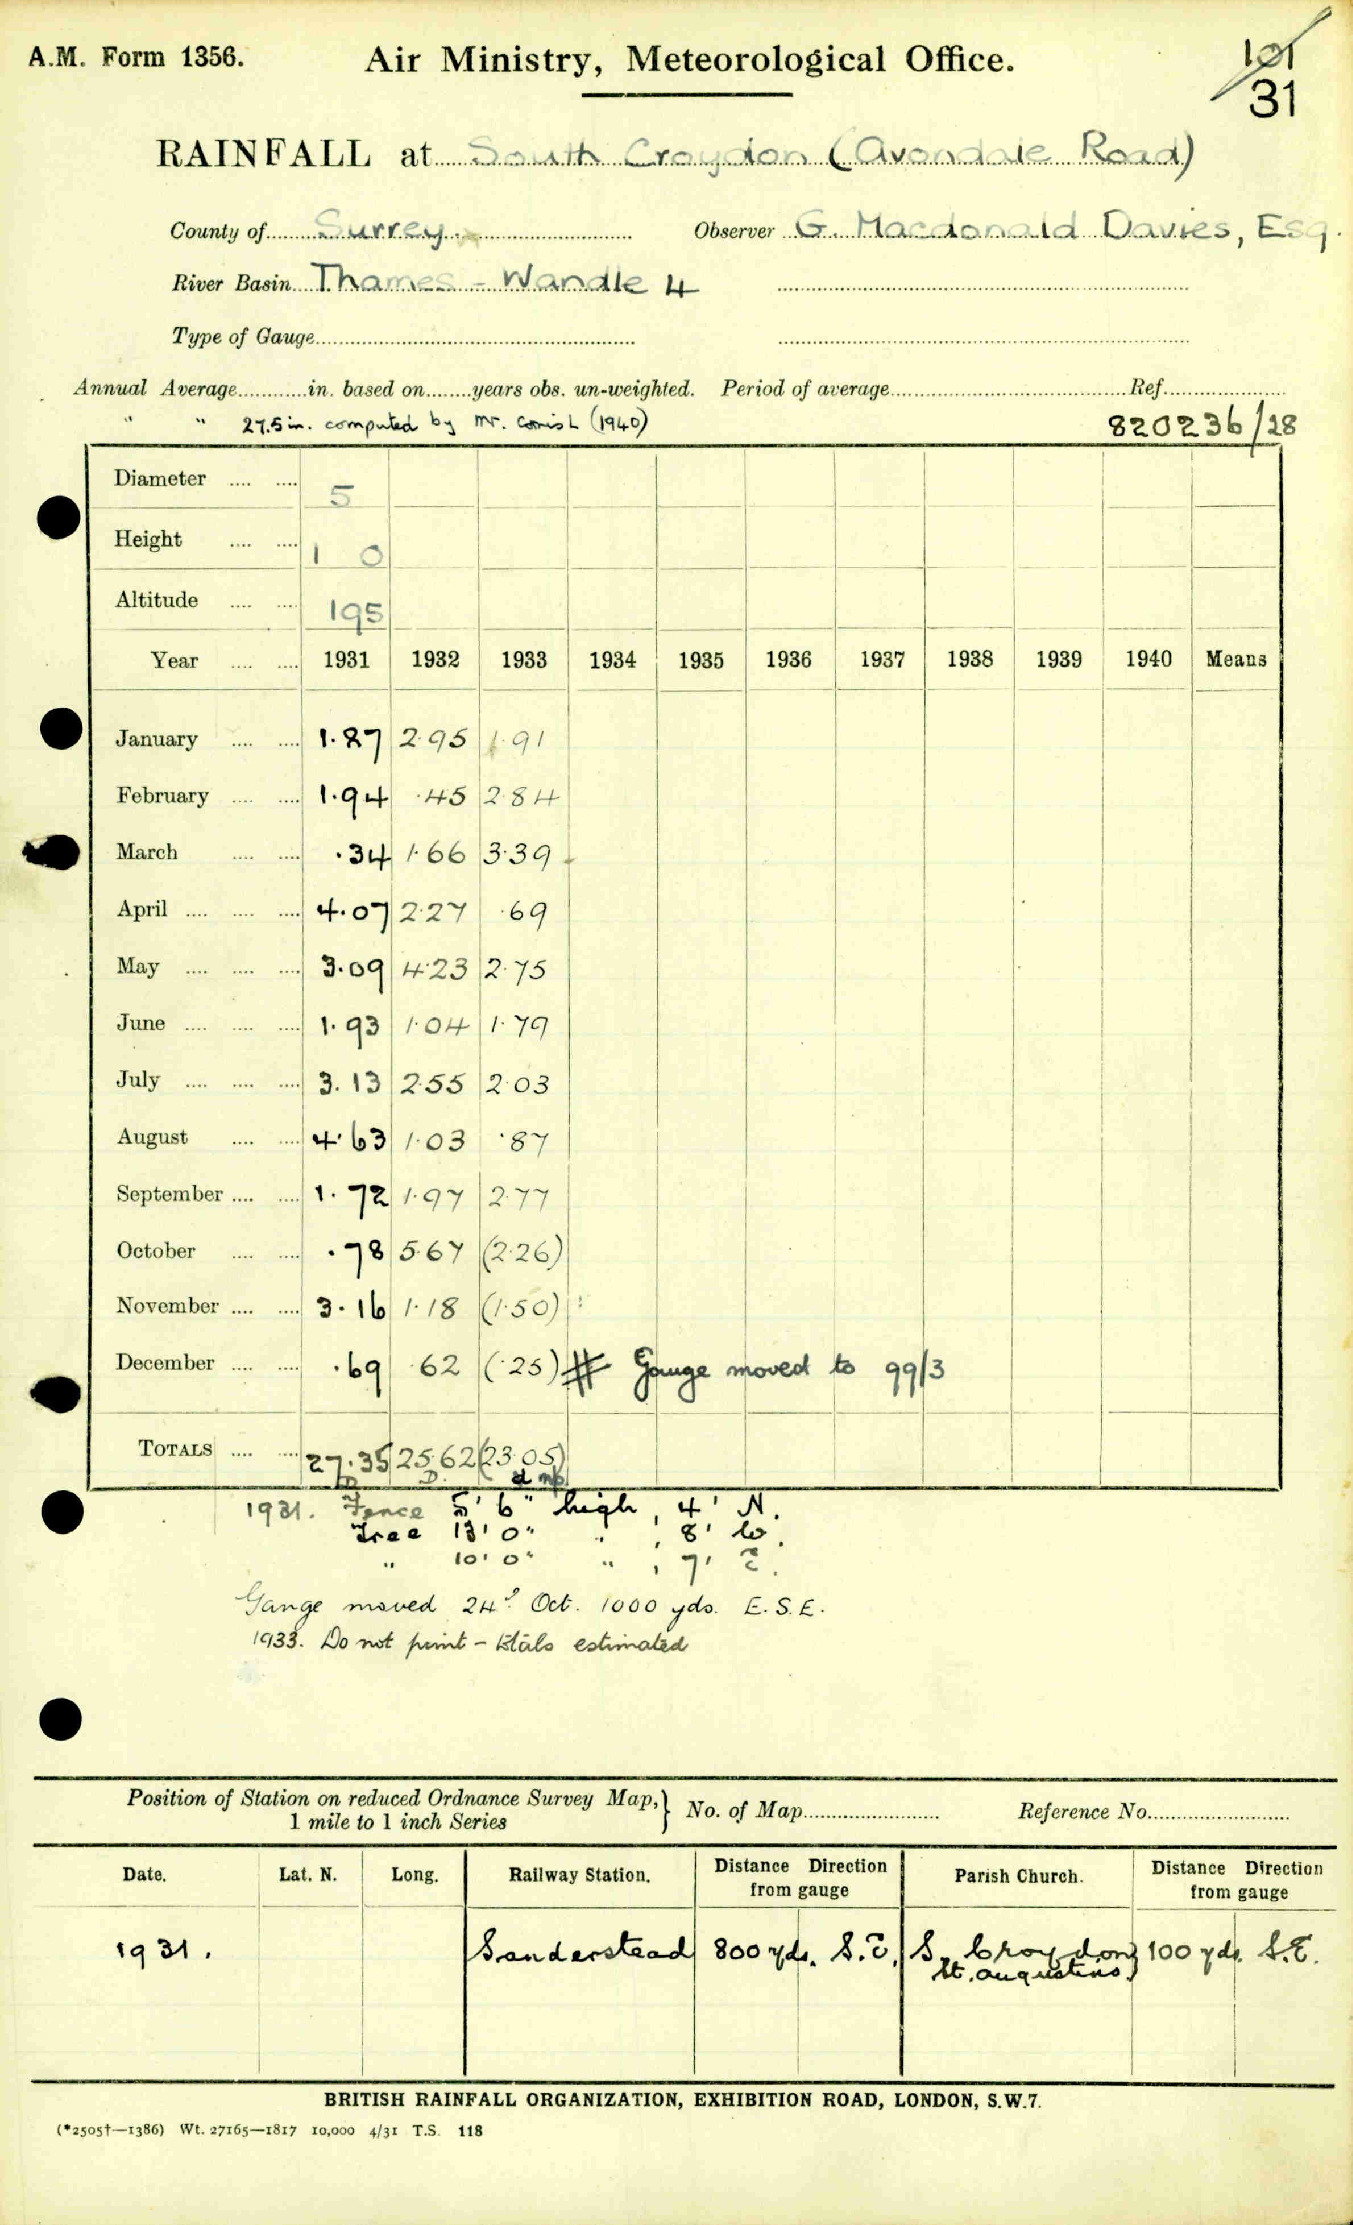 A.M. Form 1356.
Air Ministry, Meteorological Office.
101
31
RAINFALL at South Croydon (Avondale Road)
County of Surrey. Observer G. Macdonald Davies, Esq.
River Basin Thames - Wandle 4
Type of Gauge
Annual Average in. based on years obs. un-weighted. Period of average Ref.
" " 27.5 in. computed by Mr. Cornish (1940) 820236/28
Diameter 5
Height 1 0
Altitude 195
Year 1931 1932 1933 1934 1935 1936 1937 1938 1939 1940 Means
January 1.87 2.95 1.91
February 1.94 .45 2.84
March .34 1.66 3.39
April 4.07 2.27 .69
May 3.09 4.23 2.75
June 1.93 1.04 1.79
July 3.13 2.55 2.03
August 4.63 1.03 .87
September 1.72 1.97 2.77
October .78 5.67 (2.26)
November 3.16 1.18 (1.50)
December .69 .62 (.25) # Gauge moved to 99/3
TOTALS 27.35 25.62 (23.05)
D D. d np
1931. Fence 5' 6" high, 4' N.
Tree 13' 0" " , 8' W.
" 10' 0" " , 7' E.
Gauge moved 24th Oct. 1000 yds. E.S.E.
1933. Do not print - totals estimated
Position of Station on reduced Ordnance Survey Map, } No. of Map Reference No.
1 mile to 1 inch Series
Date. Lat. N. Long. Railway Station. Distance Direction from gauge Parish Church. Distance Direction from gauge
1931. Sanderstead 800 yds. S.E. S. Croydon 100 yds. S.E.
St. Augustins)
BRITISH RAINFALL ORGANIZATION, EXHIBITION ROAD, LONDON, S.W.7.
(*2505†—1386) Wt. 27165—1817 10,000 4/31 T.S. 118